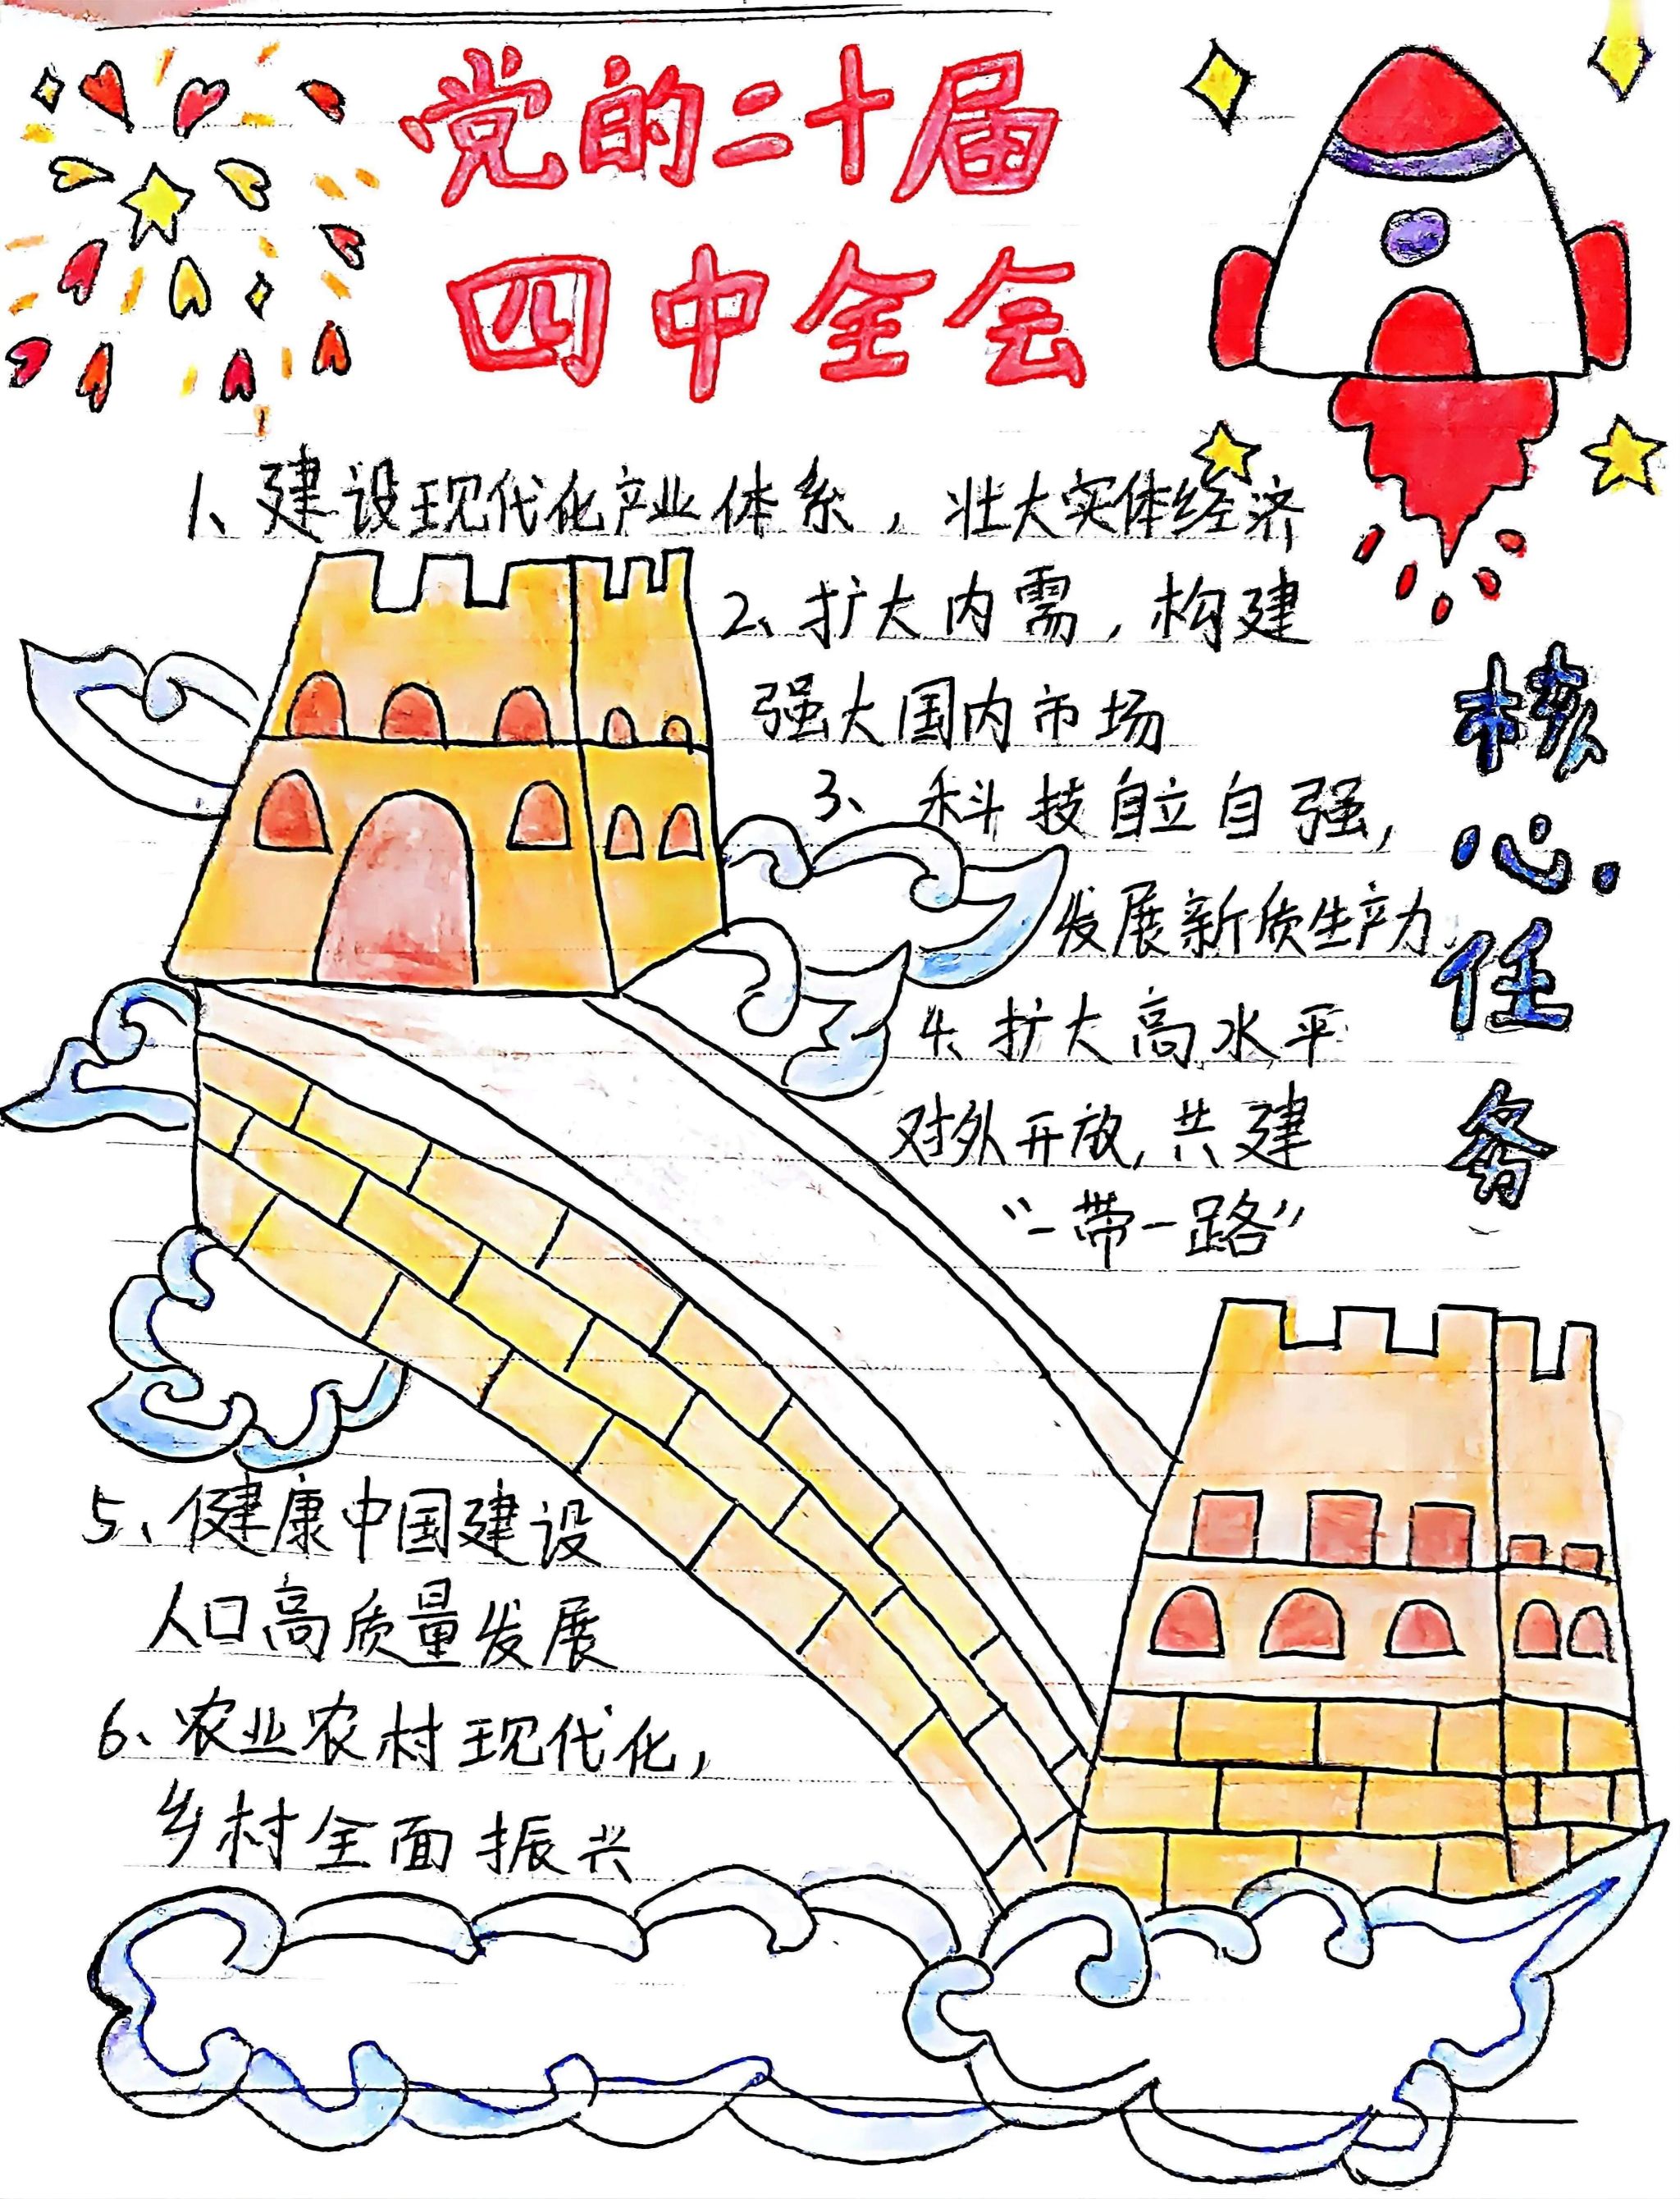 党的二十届
四中全会
1、建设现代化产业体系，壮大实体经济
2、扩大内需，构建
强大国内市场
3、科技自立自强，
发展新质生产力
4、扩大高水平
对外开放，共建
“一带一路”
核心任务
5、健康中国建设
人口高质量发展
6、农业农村现代化，
乡村全面振兴